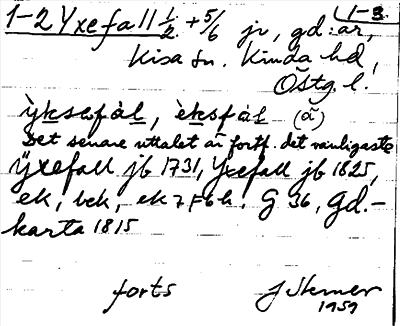 1-3.
1-2 Yxefall 1/2 + 5/6 jr, gd:ar,
Kisa sn. Kinda hd,
Östg. l.
ỳksefàl, èksfàl (ă)
Det senare uttalet är fortf. det vanligaste
Yxefall jb 1731, Yxefall jb 1825,
ek, bek, ek 7F6h. G 36, gd.-
karta 1815
forts J Sterner
1959